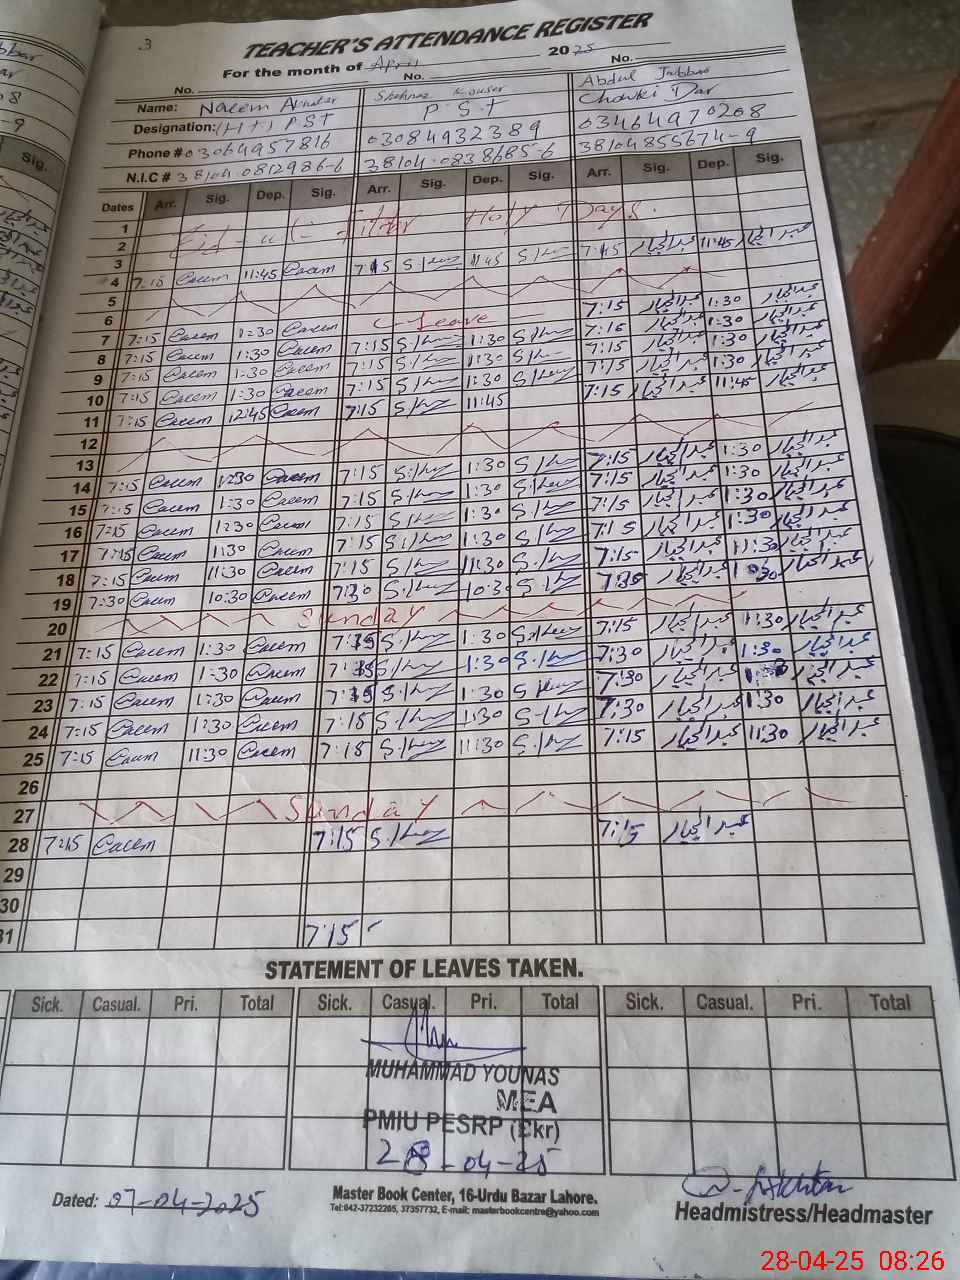 3
TEACHER'S ATTENDANCE REGISTER
For the month of April 2025
No. No. No.
Name: Naeem Akhtar Shehnaz Kouser Abdul Jabbar
Designation: (HT) PST P S T Chowki Dar
Phone # 03064957816 03084932389 03464970208
N.I.C # 38104-0812986-6 38104-0838685-6 38104855674-9
Dates Arr. Sig. Dep. Sig. Arr. Sig. Dep. Sig. Arr. Sig. Dep. Sig.
1
2 Eid-ul-Fitar Holy Days.
3
4 7:15 Naeem 11:45 Naeem 7:15 S/Kouz 11:45 S/Kouz 7:15 عبدالجبار 11:45 عبدالجبار
5
6
7 7:15 Naeem 1:30 Naeem C-Leave 7:15 عبدالجبار 1:30 عبدالجبار
8 7:15 Naeem 1:30 Naeem 7:15 S/Kouz 1:30 S/Kouz 7:15 عبدالجبار 1:30 عبدالجبار
9 7:15 Naeem 1:30 Naeem 7:15 S/Kouz 1:30 S/Kouz 7:15 عبدالجبار 1:30 عبدالجبار
10 7:15 Naeem 1:30 Naeem 7:15 S/Kouz 1:30 S/Kouz 7:15 عبدالجبار 1:30 عبدالجبار
11 7:15 Naeem 12:45 Naeem 7:15 S/Kouz 11:45 7:15 عبدالجبار 11:45 عبدالجبار
12
13
14 7:15 Naeem 1:30 Naeem 7:15 S/Kouz 1:30 S/Kouz 7:15 عبدالجبار 1:30 عبدالجبار
15 7:15 Naeem 1:30 Naeem 7:15 S/Kouz 1:30 S/Kouz 7:15 عبدالجبار 1:30 عبدالجبار
16 7:15 Naeem 1:30 Naeem 7:15 S/Kouz 1:30 S/Kouz 7:15 عبدالجبار 1:30 عبدالجبار
17 7:15 Naeem 11:30 Naeem 7:15 S/Kouz 1:30 S/Kouz 7:15 عبدالجبار 1:30 عبدالجبار
18 7:15 Naeem 11:30 Naeem 7:15 S/Kouz 11:30 S/Kouz 7:15 عبدالجبار 11:30 عبدالجبار
19 7:30 Naeem 10:30 Naeem 7:30 S/Kouz 10:30 S/Kouz عبدالجبار عبدالجبار
20 Sunday
21 7:15 Naeem 1:30 Naeem 7:15 S/Kouz 1:30 S/Kouz 7:15 عبدالجبار 1:30 عبدالجبار
22 7:15 Naeem 1:30 Naeem 7:15 S/Kouz 1:30 S/Kouz 7:30 عبدالجبار 1:30 عبدالجبار
23 7:15 Naeem 1:30 Naeem 7:15 S/Kouz 1:30 S/Kouz 7:30 عبدالجبار عبدالجبار
24 7:15 Naeem 1:30 Naeem 7:18 S/Kouz 1:30 S/Kouz 7:30 عبدالجبار 1:30 عبدالجبار
25 7:15 Naeem 11:30 Naeem 7:18 S/Kouz 11:30 S/Kouz 7:15 عبدالجبار 11:30 عبدالجبار
26
27 Sunday
28 7:15 Naeem 7:15 S/Kouz 7:15 عبدالجبار
29
30
31 7:15
STATEMENT OF LEAVES TAKEN.
Sick. Casual. Pri. Total Sick. Casual. Pri. Total Sick. Casual. Pri. Total
MUHAMMAD YOUNAS
MEA
PMIU PESRP (Bkr)
28-04-25
Dated: 07-04-2025
Master Book Center, 16-Urdu Bazar Lahore.
Tel:042-37232205, 37357732, E-mail: masterbookcentre@yahoo.com
Headmistress/Headmaster
28-04-25 08:26